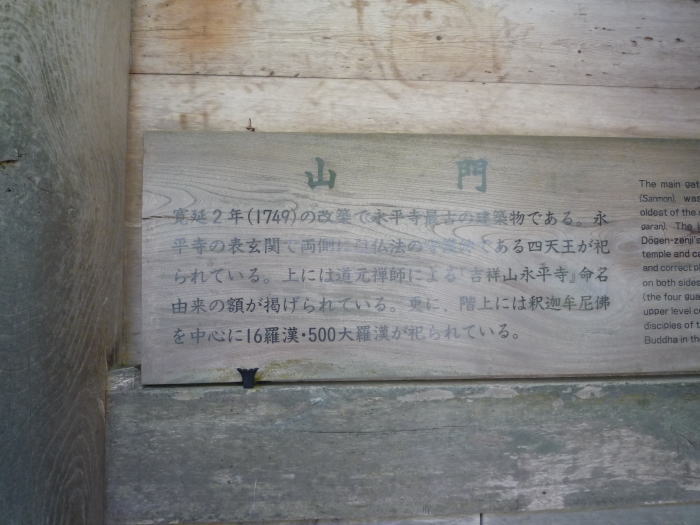 山門
寛延2年(1749)の改築で永平寺最古の建築物である。永
平寺の表玄関で両側には仏法の守護神である四天王が祀
られている。上には道元禅師による『吉祥山永平寺』命名
由来の額が掲げられている。更に、階上には釈迦牟尼佛
を中心に16羅漢・500大羅漢が祀られている。
The main gat
(Sanmon), was
oldest of the
garan). The
Dōgen-zenji's
temple and ca
and correct o
on both sides
(the four gua
upper level c
disciples of t
Buddha in the